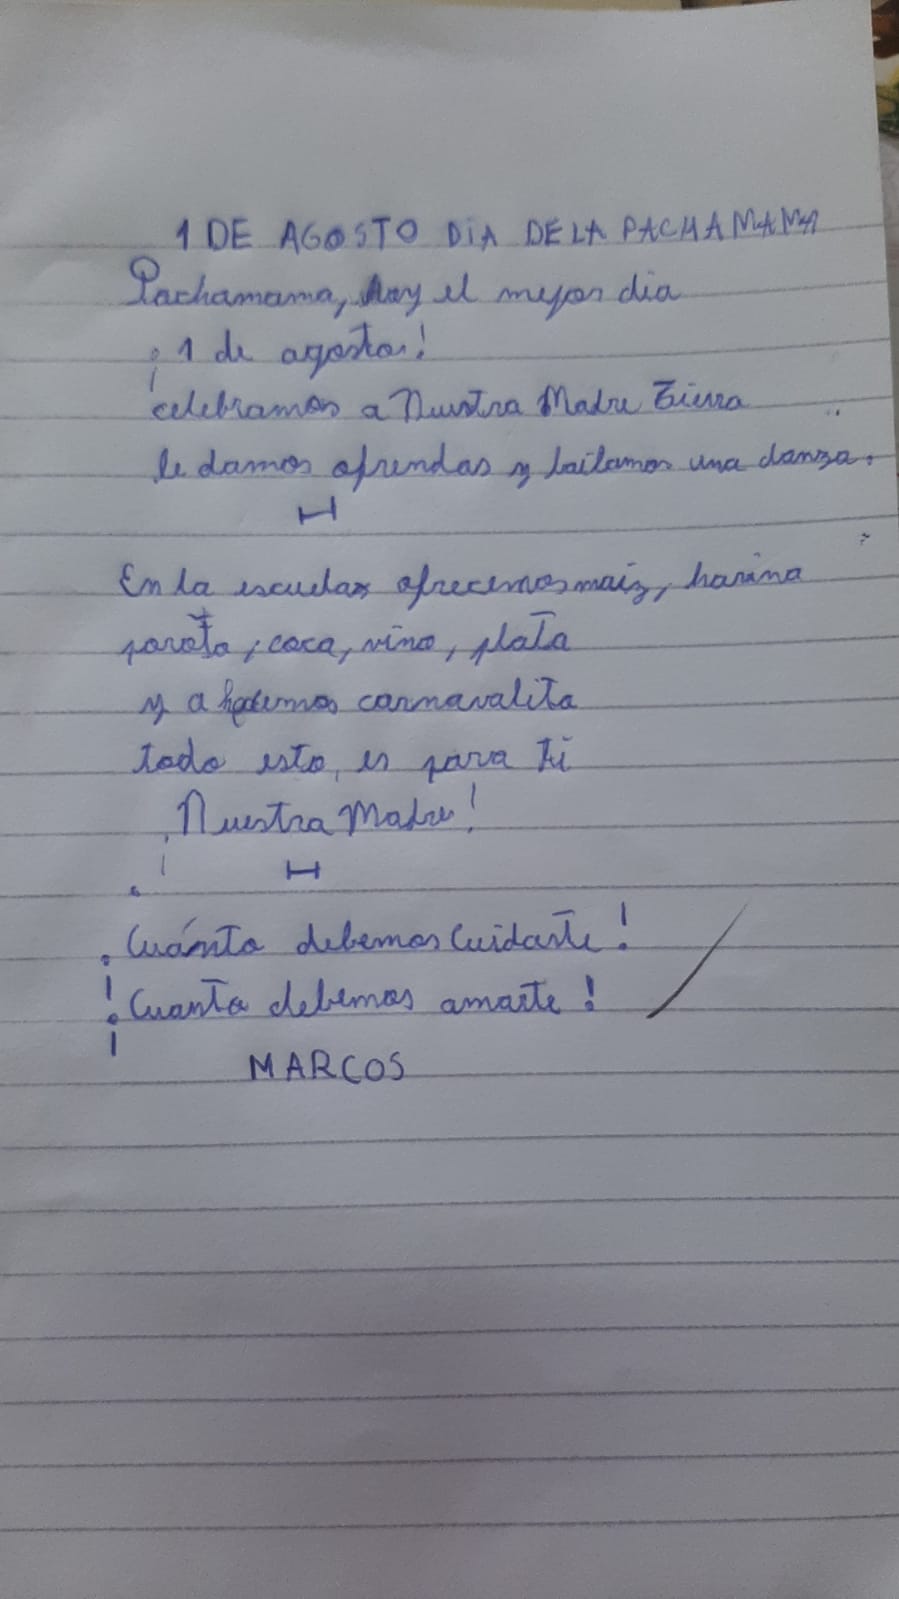 1 DE AGOSTO DIA DE LA PACHAMAMA
Pachamama, hoy el mejor dia
¡1 de agosto!
celebramos a Nuestra Madre Tierra
le damos ofrendas y bailamos una danza.
En la escuela ofrecemos maiz, harina
poroto, coca, vino, plata
y a carnavalito
todo esto, es para ti
¡Nuestra Madre!
¡Cuánto debemos Cuidarte!
¡Cuanto debemos amarte!
MARCOS